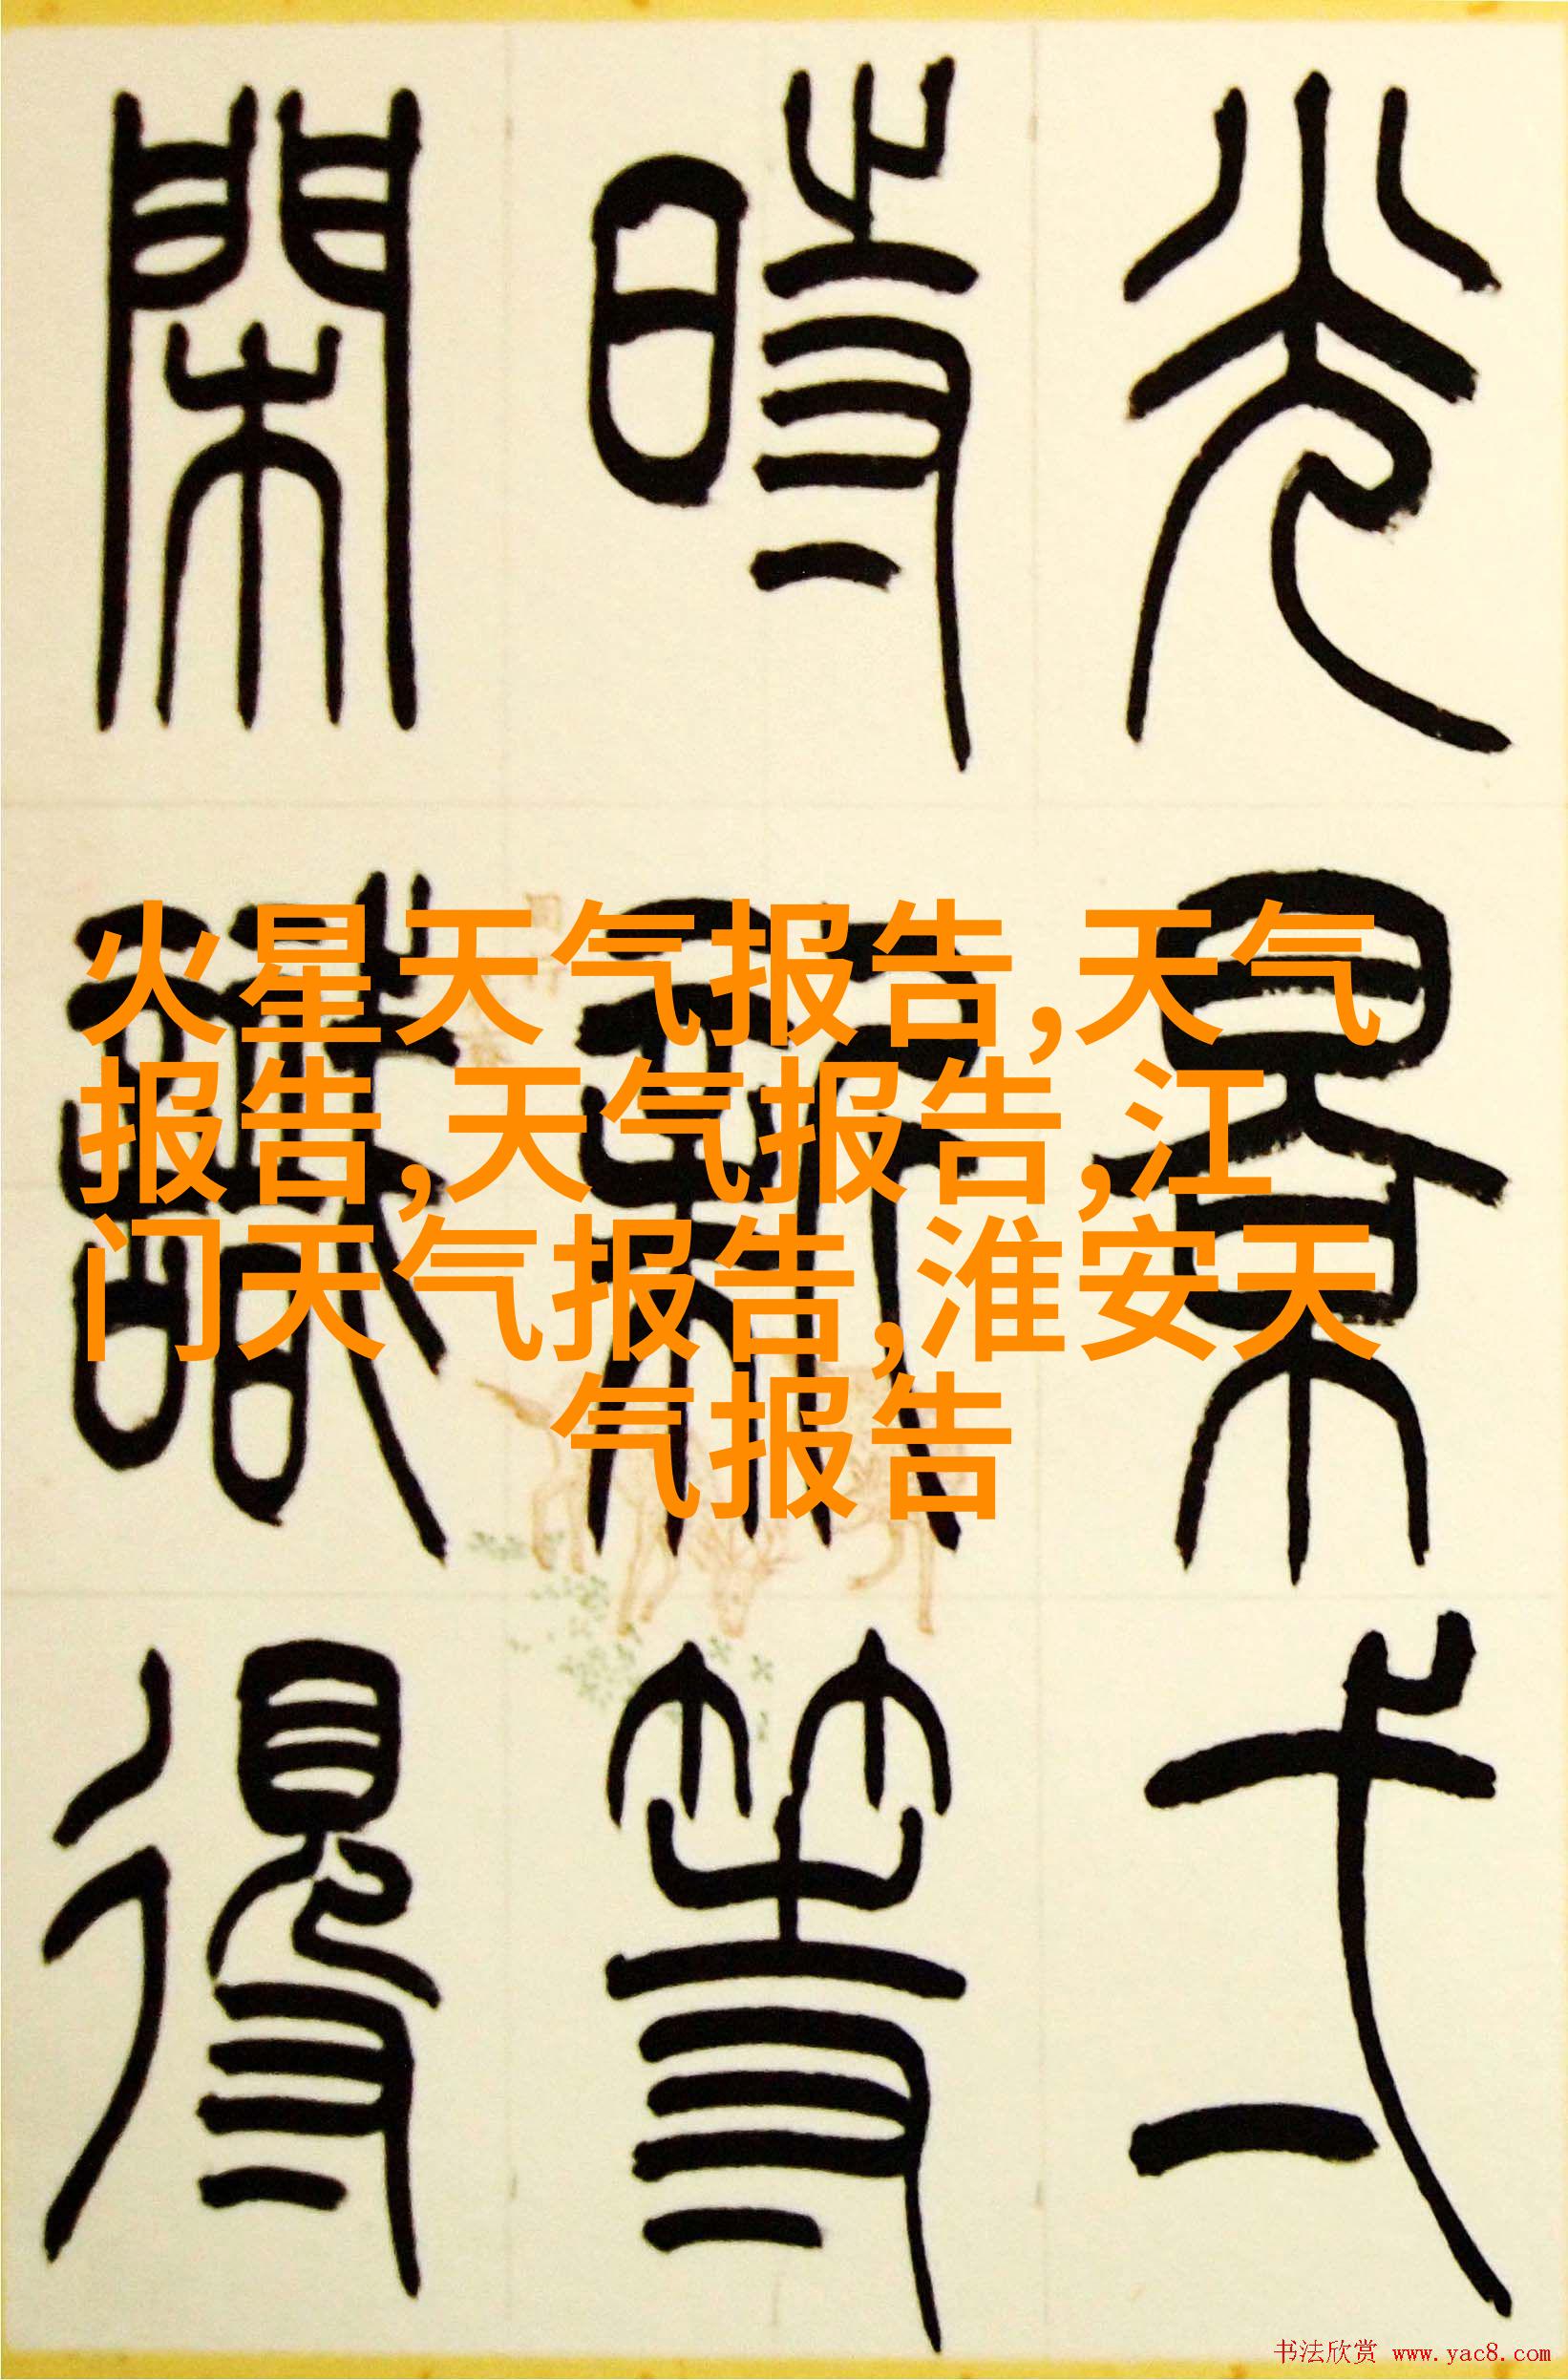 光景弌
時新等
閑識得
火星天气报告,天气
报告,天气报告,江
门天气报告,淮安天
气报告
书法欣赏 www.yac8.com